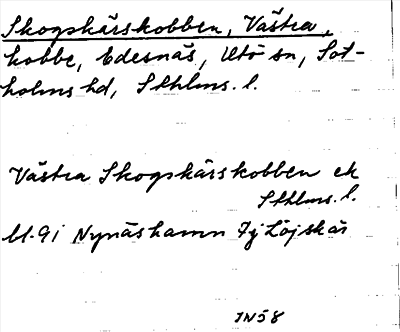 Skogskärskobben, Västra,
kobbe, Edesnäs, Utö sn, Sot-
holms hd, Sthlms. l.
Västra Skogskärskobben ek
Sthlms. l.
bl. 9i Nynäshamn 7j Löjskär
IN58